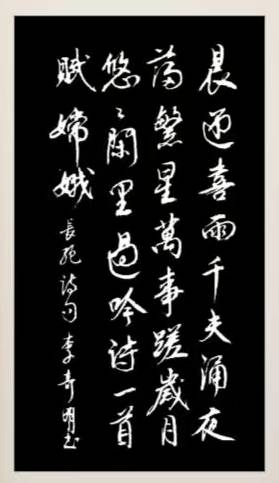 晨迎喜雨千夫涌夜
荡繁星萬事蹉歲月
悠〻閑里過吟诗一首
賦嫦娥長苑诗句李奇明书